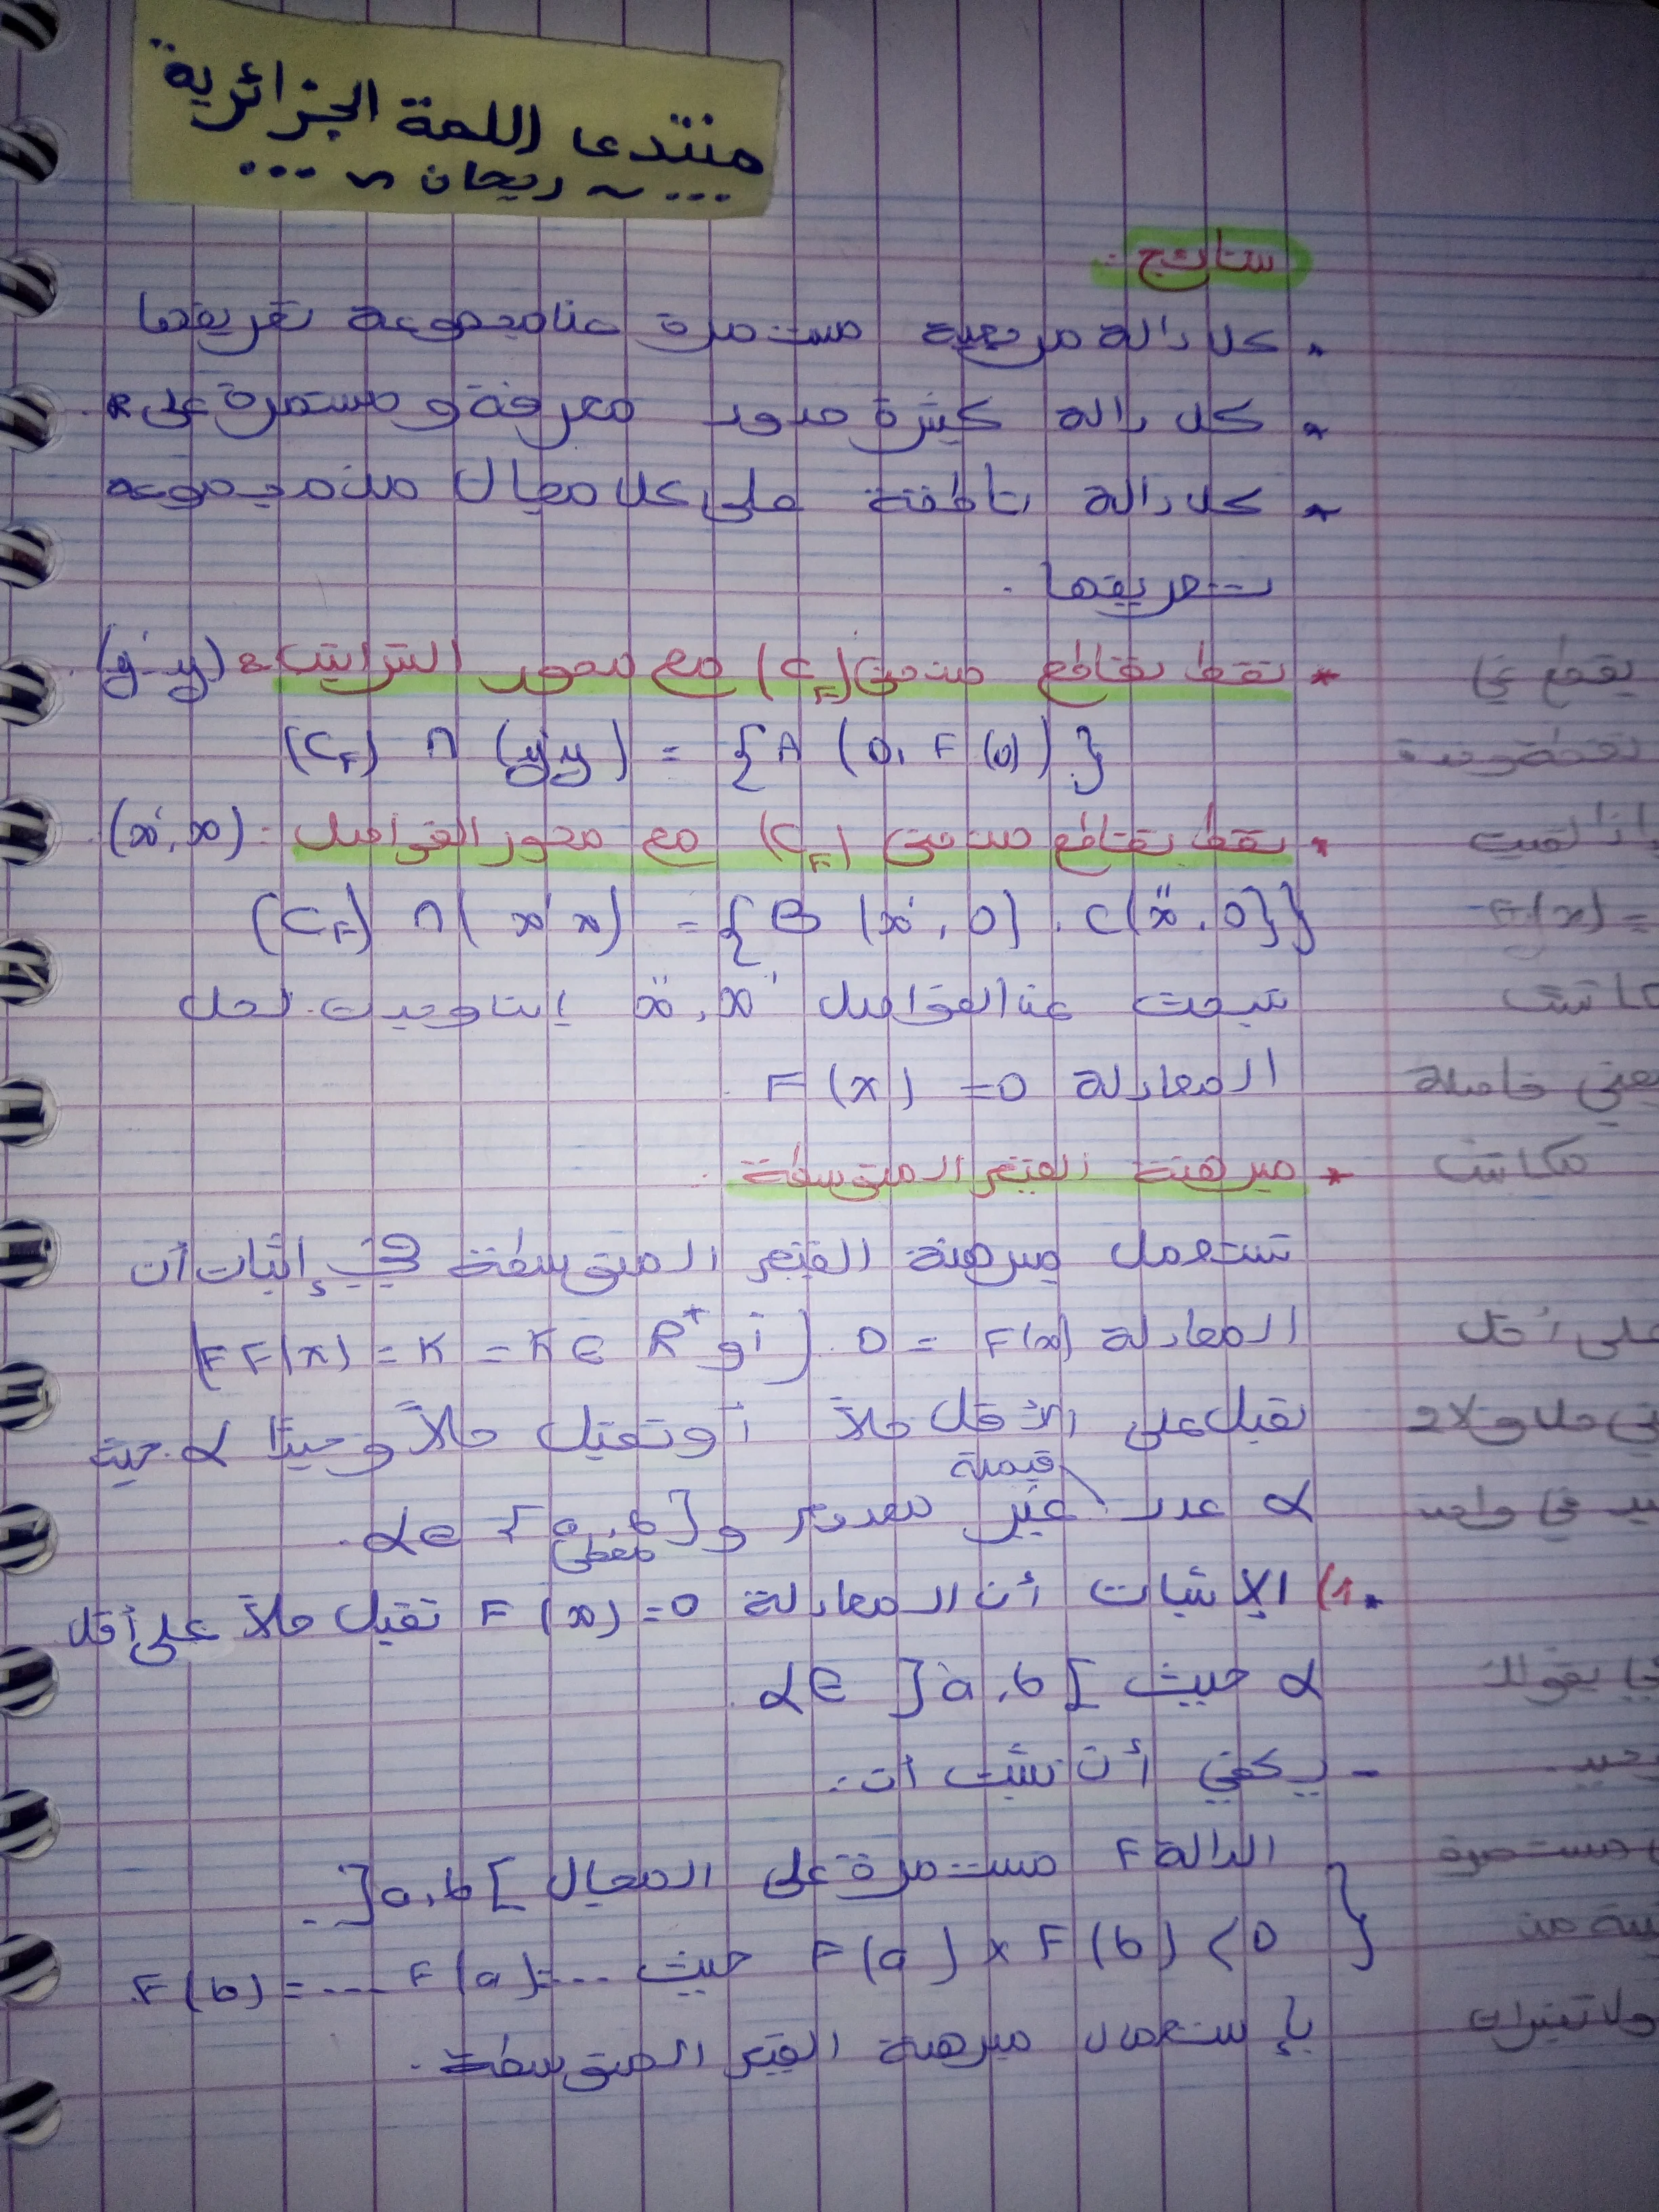 منتدى اللمة الجزائرية
... ~ ريحان ~ ...
نتائج :
* كل دالة مرجعية مستمرة على مجموعة تعريفها
* كل دالة كثيرة حدود معرفة و مستمرة على R.
* كل دالة ناطقة على كل مجال من مجموعة
تعريفها .
* نقط تقاطع منحنى (CF) مع محور التراتيب : (y'y)
(CF) ∩ (y'y) = {A (0, F(0))}
* نقط تقاطع منحنى (CF) مع محور الفواصل : (x', x)
(CF) ∩ (x'x) = {B (x', 0) . C(x'', 0)}
نبحث عن الفواصل x', x'' إن وجدت لحل
المعادلة F(x) = 0
* مبرهنة القيم المتوسطة .
تستعمل مبرهنة القيم المتوسطة في إثبات أن
المعادلة F(x) = 0 (أو F F(x) = K = K ∈ R+)
تقبل على الأقل حلاً أو تقبل حلاً وحيدًا α حيث
قيمة
α عدد غير معدوم و α ∈ ]a, b[ .
معطى
1) الإثبات أن المعادلة F(x) = 0 تقبل حلاً على أقل
α حيث α ∈ ]a, b[
- يكفي أن نثبت أن :
الدالة F مستمرة على المجال ]a, b[ .
F(a) x F(b) < 0 حيث F(a) = ... F(b) = ...
بإستعمال مبرهنة القيم المتوسطة .
يقطع في
إذا لقيت
F(x) =
يعني فاصلة
على أقل